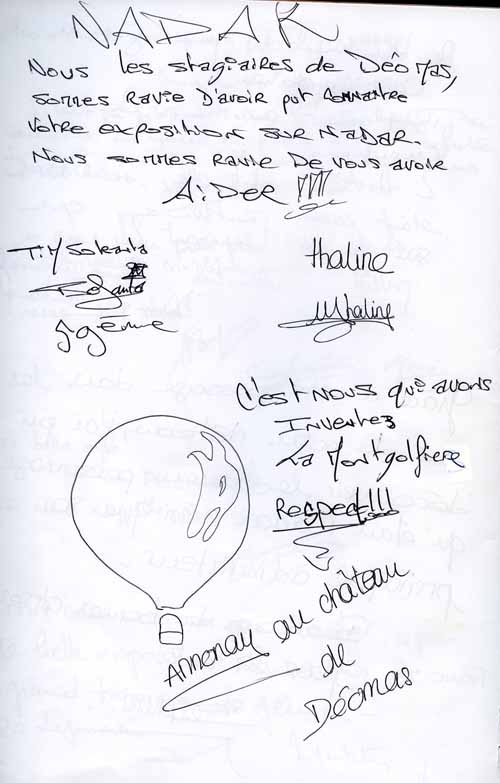 NADAR
Nous les stagiaires de Déomas,
sommes ravie D'avoir put connaitre
votre exposition sur NaDAR.
Nous sommes ravie De vous avoir
AiDer !!!!
thaline
C'est nous qui avons
Inventez
La Montgolfiere
Respect!!!
Annonay au château
de
Déomas